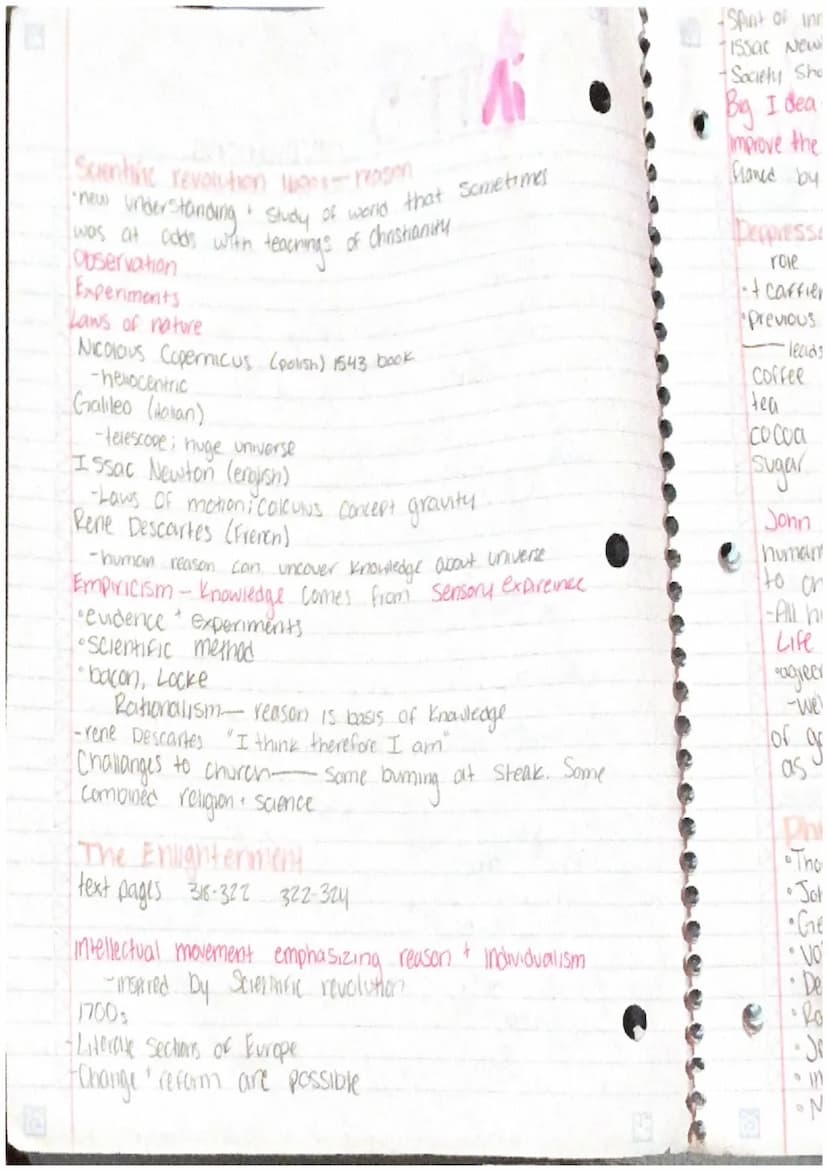 Scientific revolution 1600s - reason
·new understanding + study of world that sometimes
was at odds with teachings of Christianity
Observation
Experiments
Laws of nature
Nicolous Copernicus (polish) 1543 book
-heliocentric
Galileo (italian)
-telescope; huge universe
Issac Newton (english)
-Laws of motion; calculus concept gravity
Rene Descartes (French)
-human reason can uncover knowledge about universe
Empiricism - knowledge comes from sensory expireince
·evidence + experiments
·scientific method
·bacon, Locke
Rationalism - reason is basis of knowledge
-rene Descartes "I think therefore I am"
Challanges to church — some burning at steak. Some
combined religion + science
The Enlightenment
text pages 318-322 322-324
intellectual movement emphasizing reason + individualism
-inspired by Scientific revolution
1700s
-Literate sections of Europe
-Change + reform are possible
-Spirit of
-Issac
-Society
Big Idea
improve the
by
role
·previous
leads
coffee
tea
cocoa
sugar
John
human
to
-All
Life
of
as